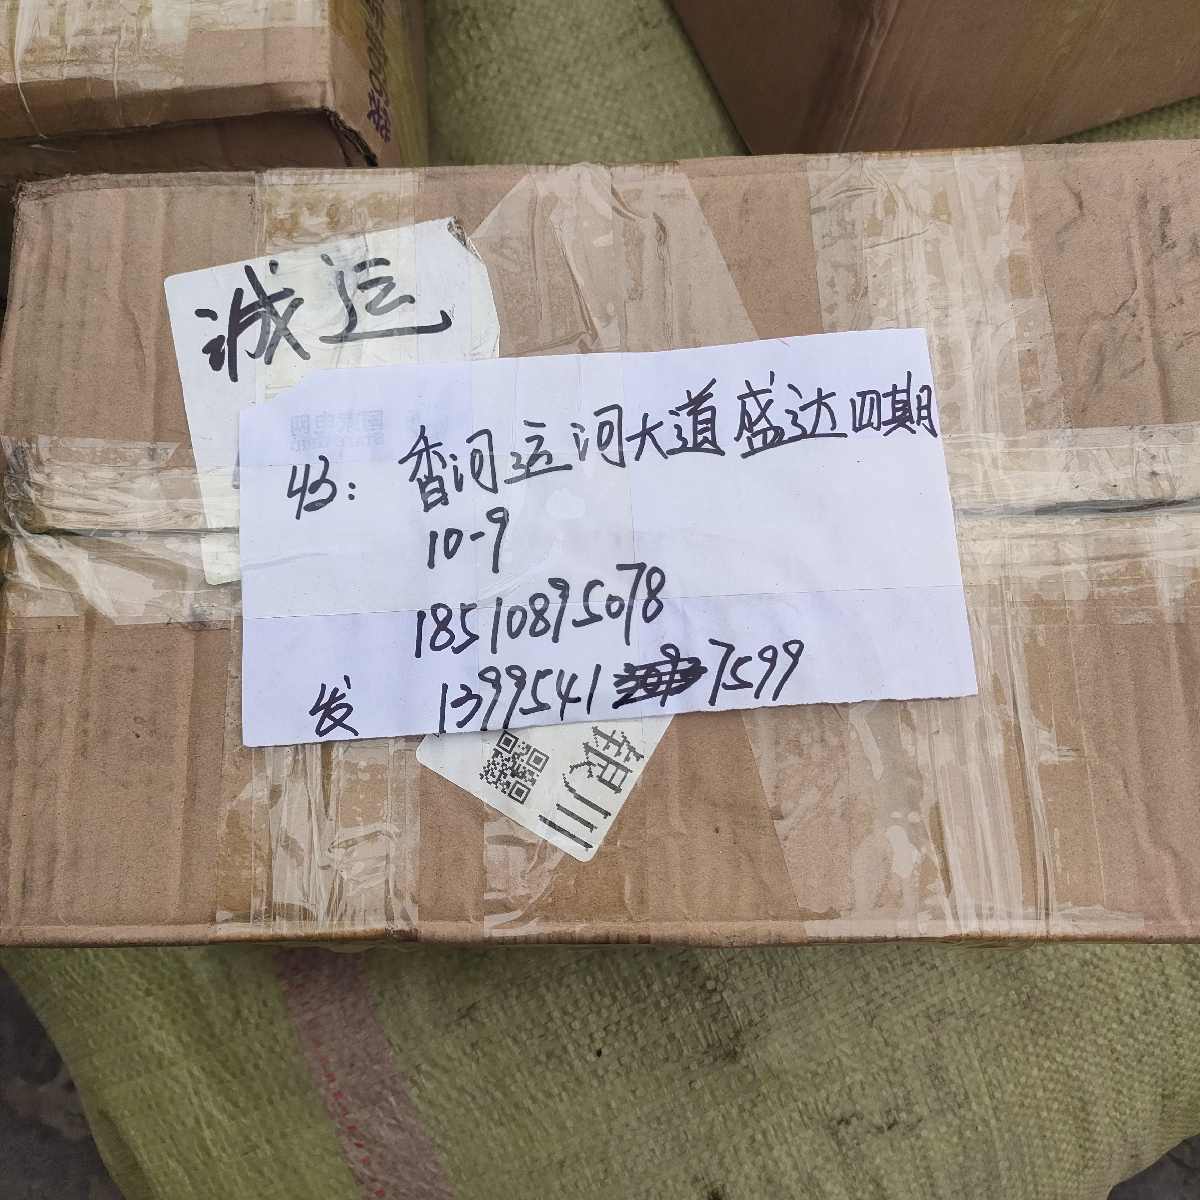 诚运
收：香河运河大道盛达四期
10-9
18510895078
发 1399541 7599
银川